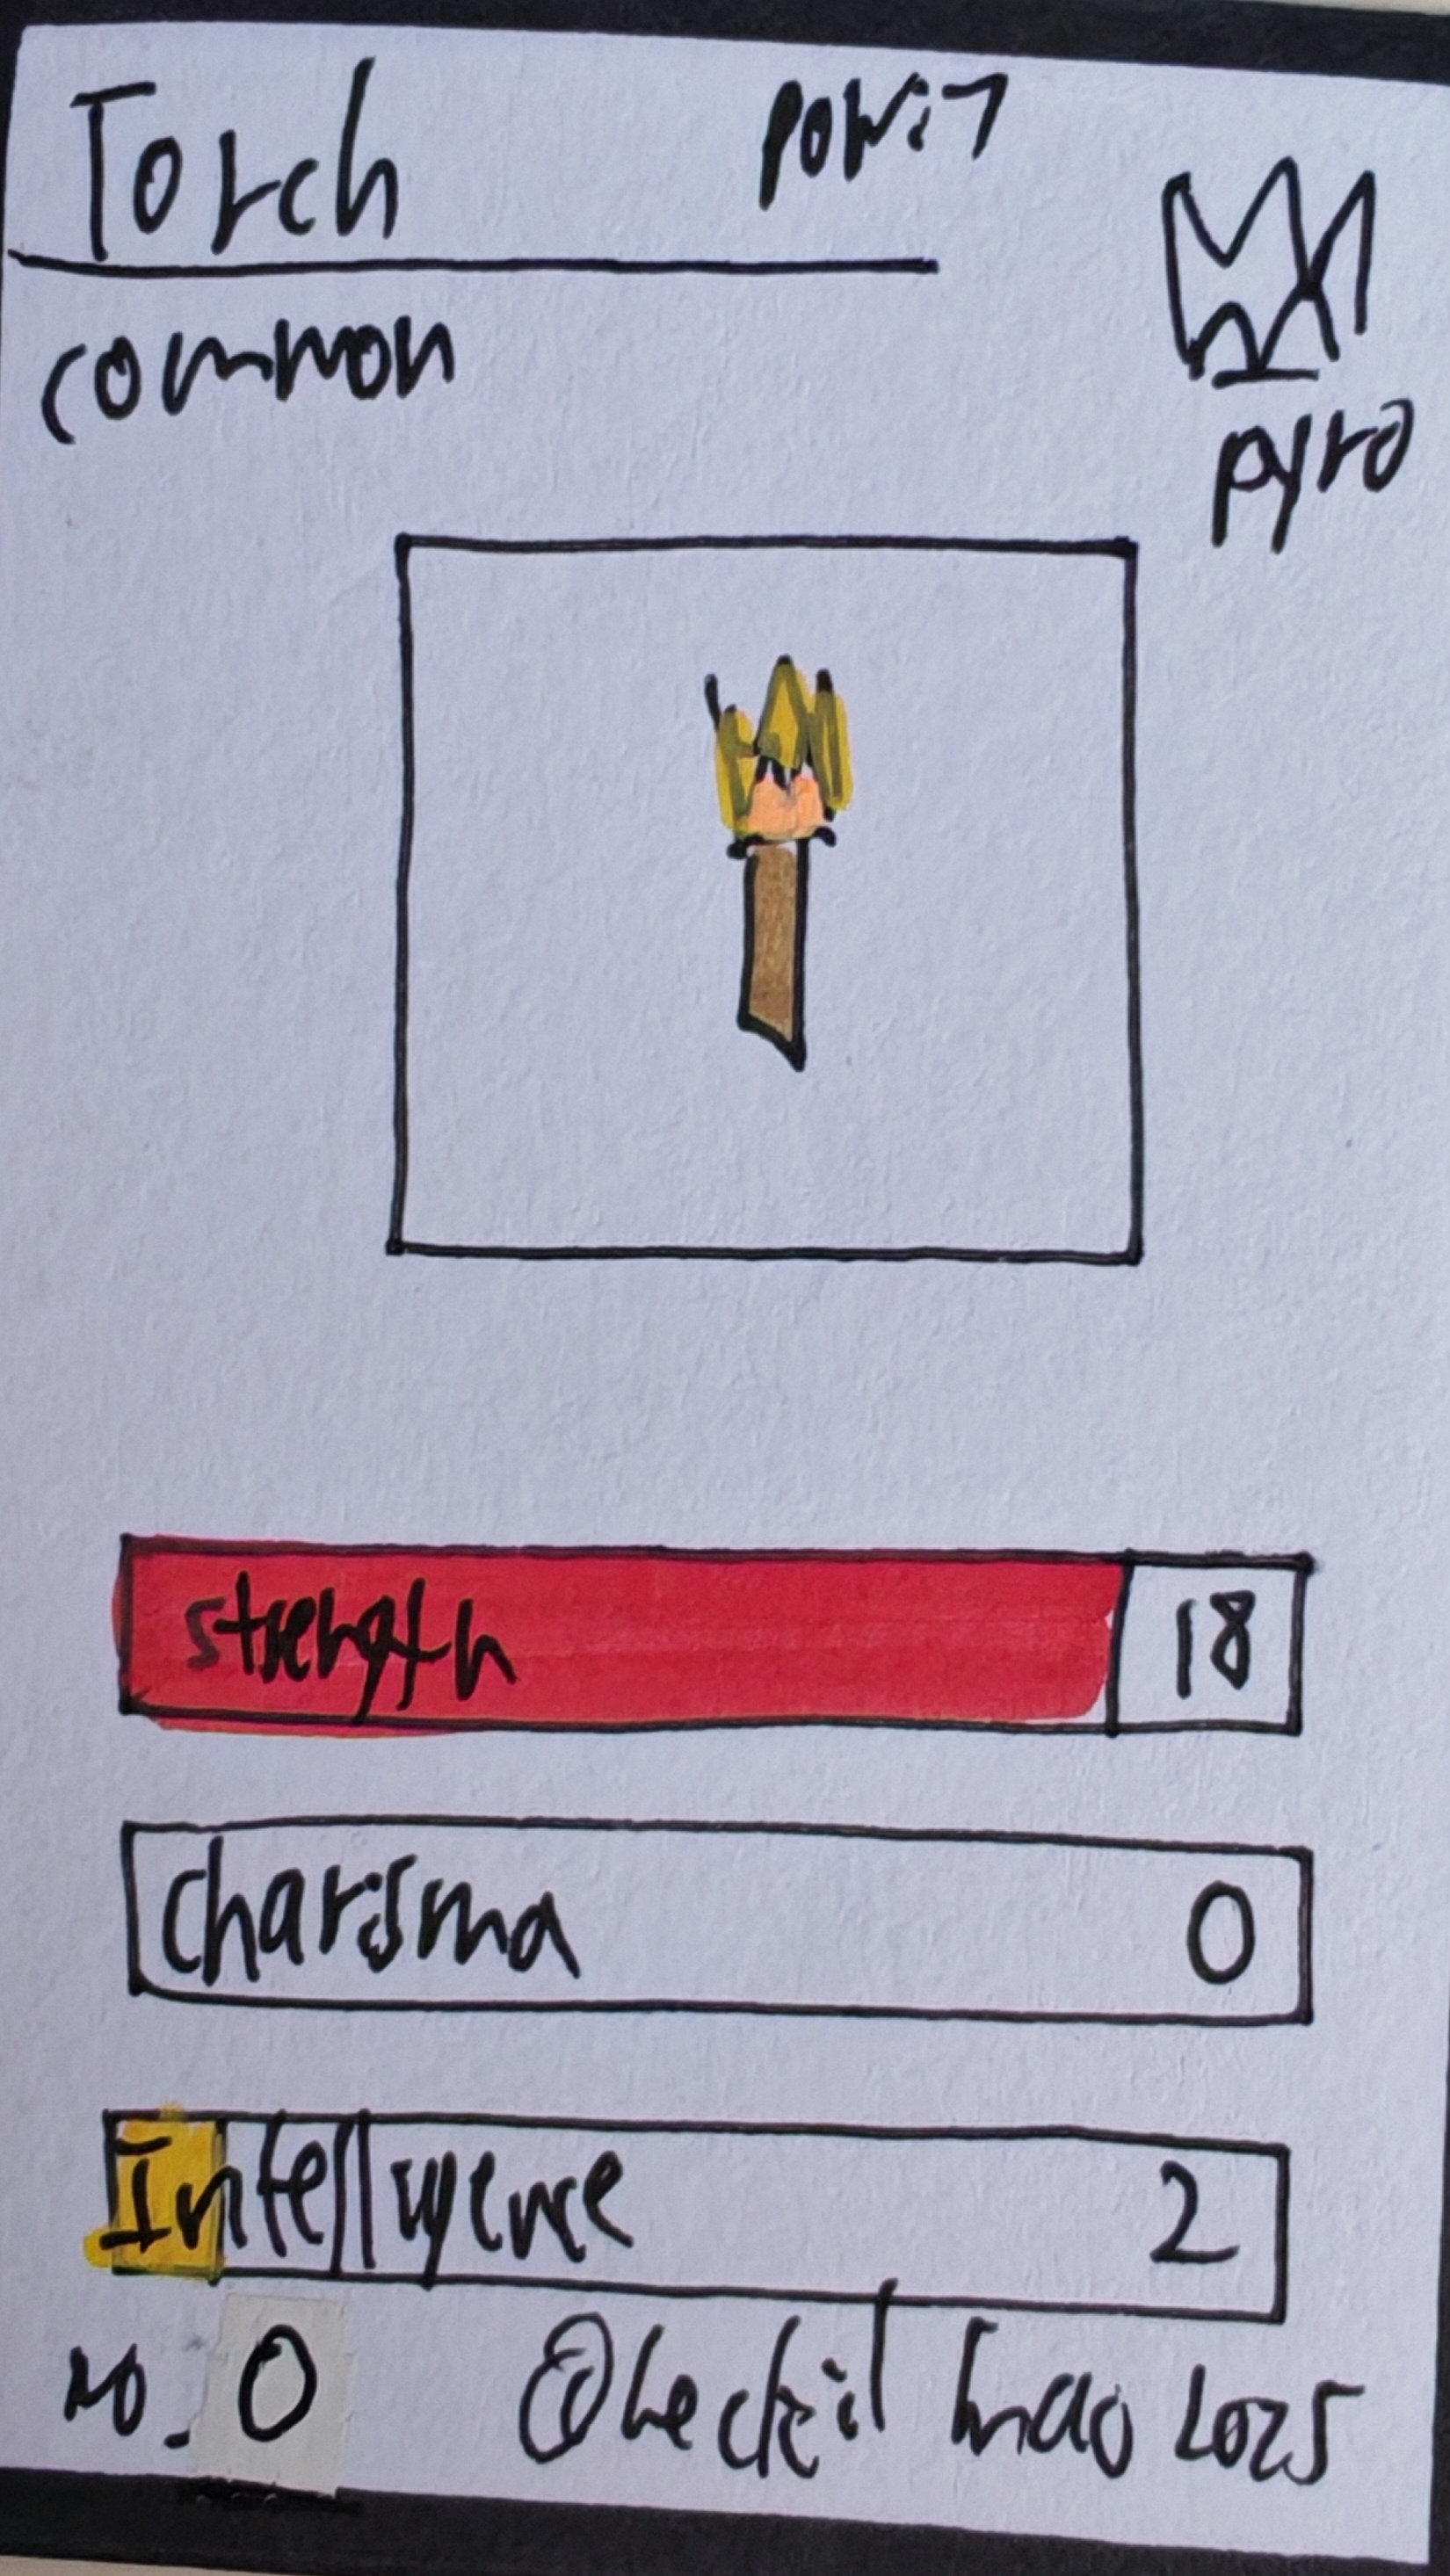 Torch pow:7
common
pyro
strength 18
charisma 0
Intelligence 2
no. 0 2025